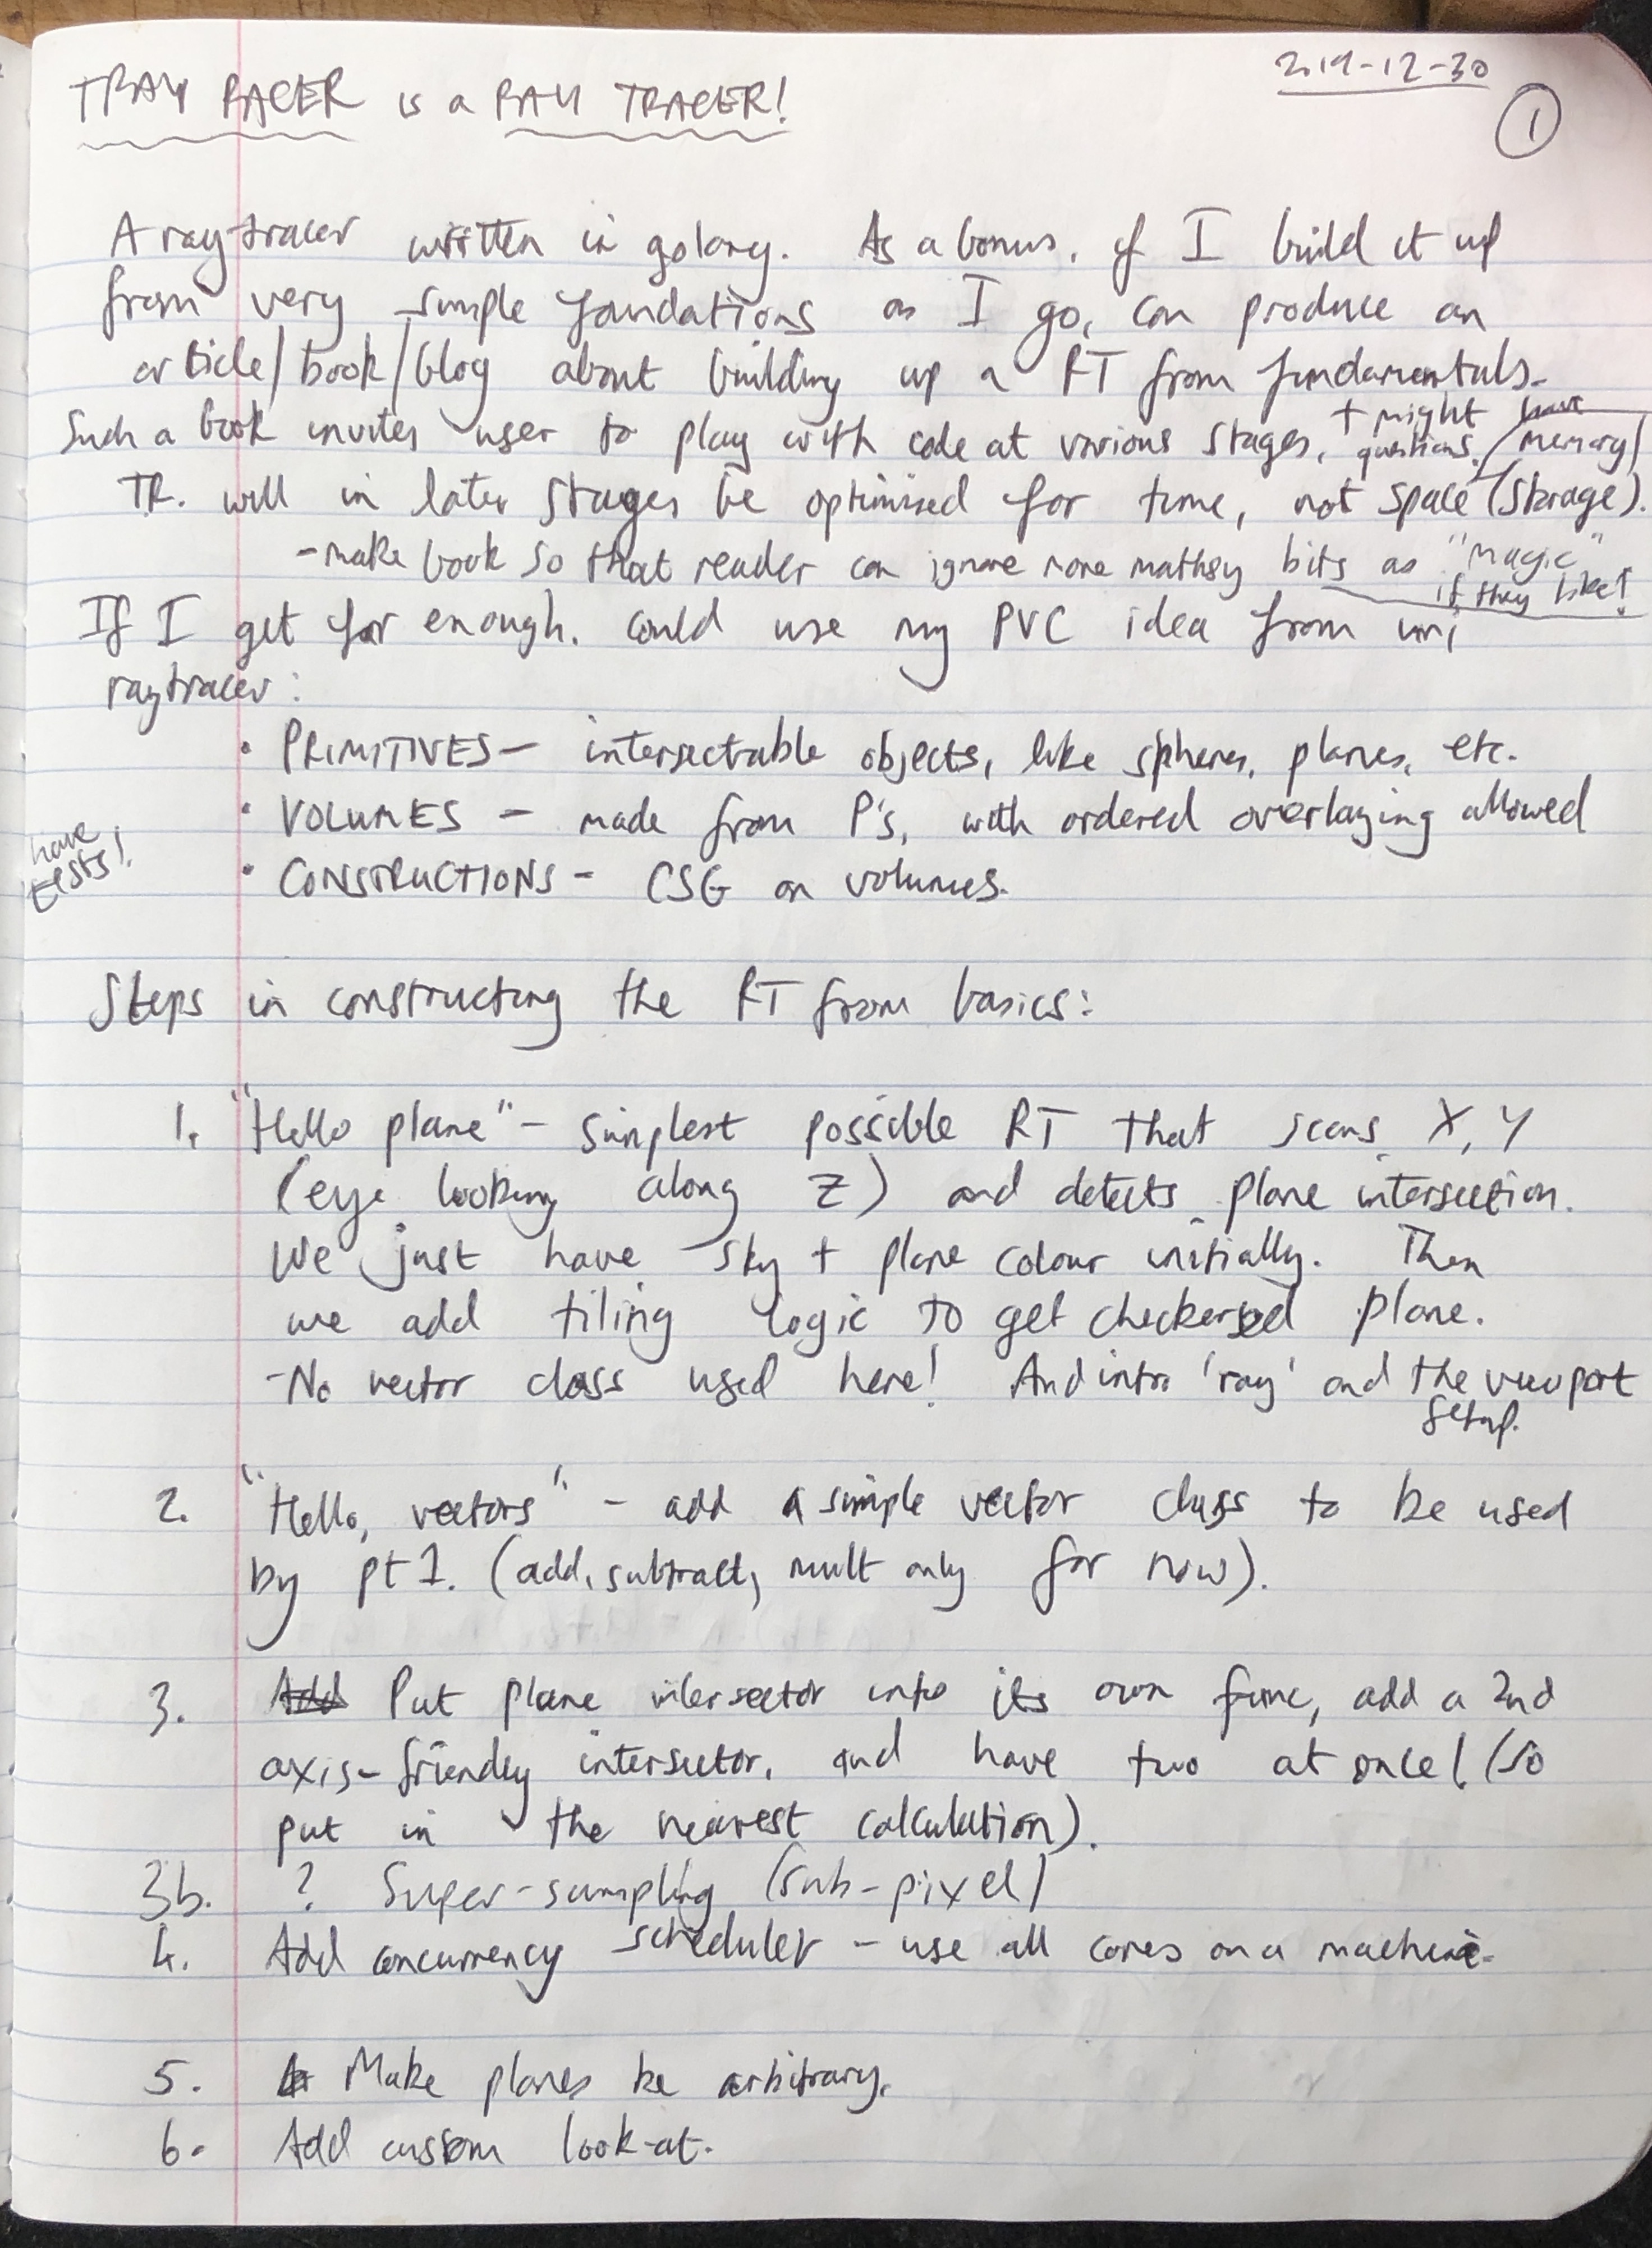 2019-12-30
1
TRAY RACER is a RAY TRACER!
A raytracer written in golang. As a bonus, if I build it up
from very simple foundations as I go, can produce an
article/book/blog about building up a RT from fundamentals.
Such a book invites user to play with code at various stages, + might have questions.
TR. will in later stages be optimised for time, not space (memory/storage).
- make book so that reader can ignore more mathsy bits as "magic"
if they like!
If I get far enough, could use my PVC idea from uni
raytracer:
• PRIMITIVES - intersectable objects, like spheres, planes, etc.
• VOLUMES - made from P's, with ordered overlaying allowed
have
tests!
• CONSTRUCTIONS - CSG on volumes.
Steps in constructing the RT from basics:
1. "Hello plane" - simplest possible RT that scans X, Y
(eye looking along Z) and detects plane intersection.
We just have sky + plane colour initially. Then
we add tiling logic to get checkered plane.
- No vector class used here! And intro 'ray' and the viewport
setup.
2. "Hello, vectors" - add a simple vector class to be used
by pt 1. (add, subtract, mult only for now).
3. Add Put plane intersector into its own func, add a 2nd
axis-friendly intersector, and have two at once! (So
put in the nearest calculation).
3b. ? Super-sampling (sub-pixel)
4. Add concurrency scheduler - use all cores on a machine.
5. Make planes be arbitrary.
6. Add custom look-at.